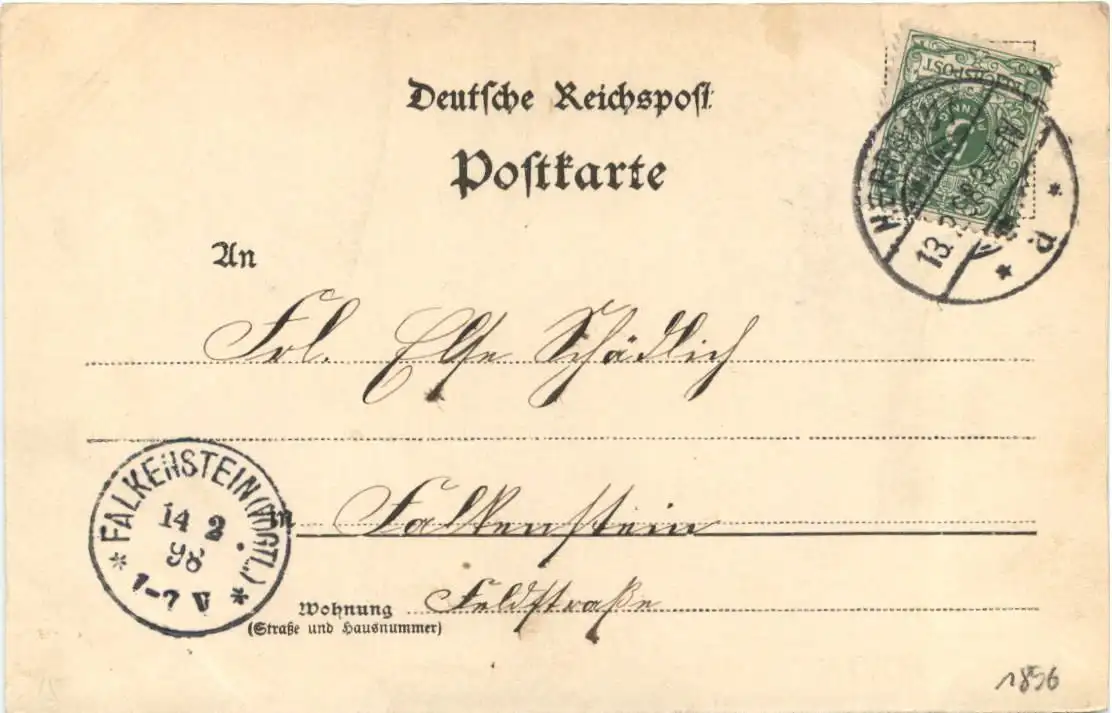 Deutsche Reichspost
Postkarte
REICHSPOST
13.2.98
An
Frl. Else Schädlich
FALKENSTEIN (VOGTL.)
14 2
98
1-7 V
in Falkenstein
Wohnung Feldstraße
(Straße und Hausnummer)
1896